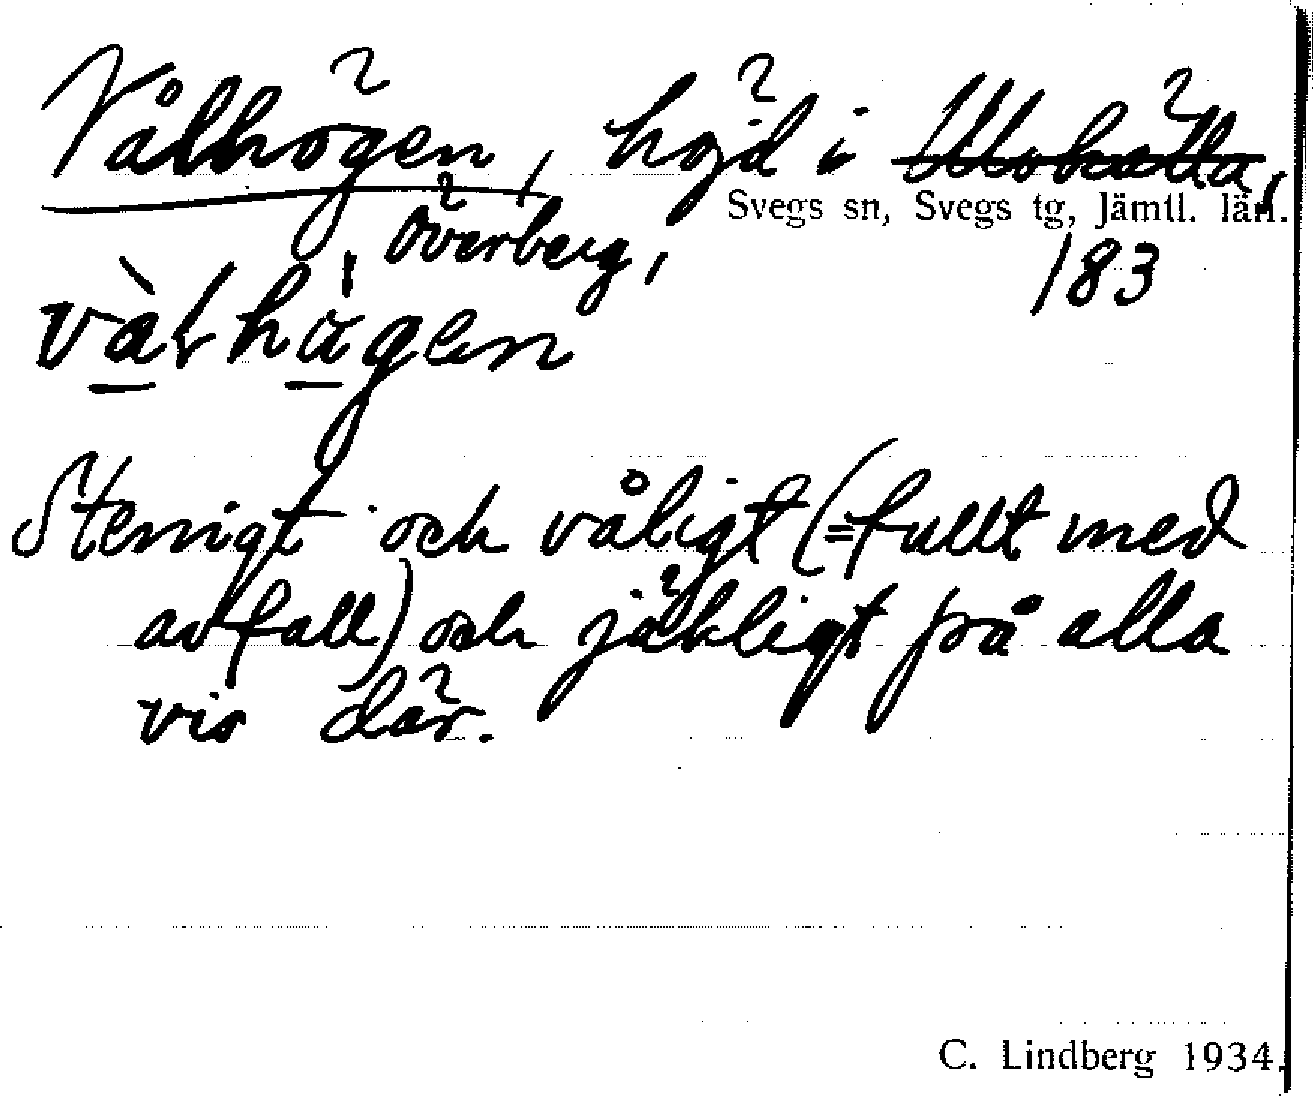 Vålhögen, höjd i Ulvkälla,
Svegs sn, Svegs tg, Jämtl. län.
Överberg,
183
Stenigt och våligt (=fullt med
avfall) och jäkligt på alla
vis där.
C. Lindberg 1934.